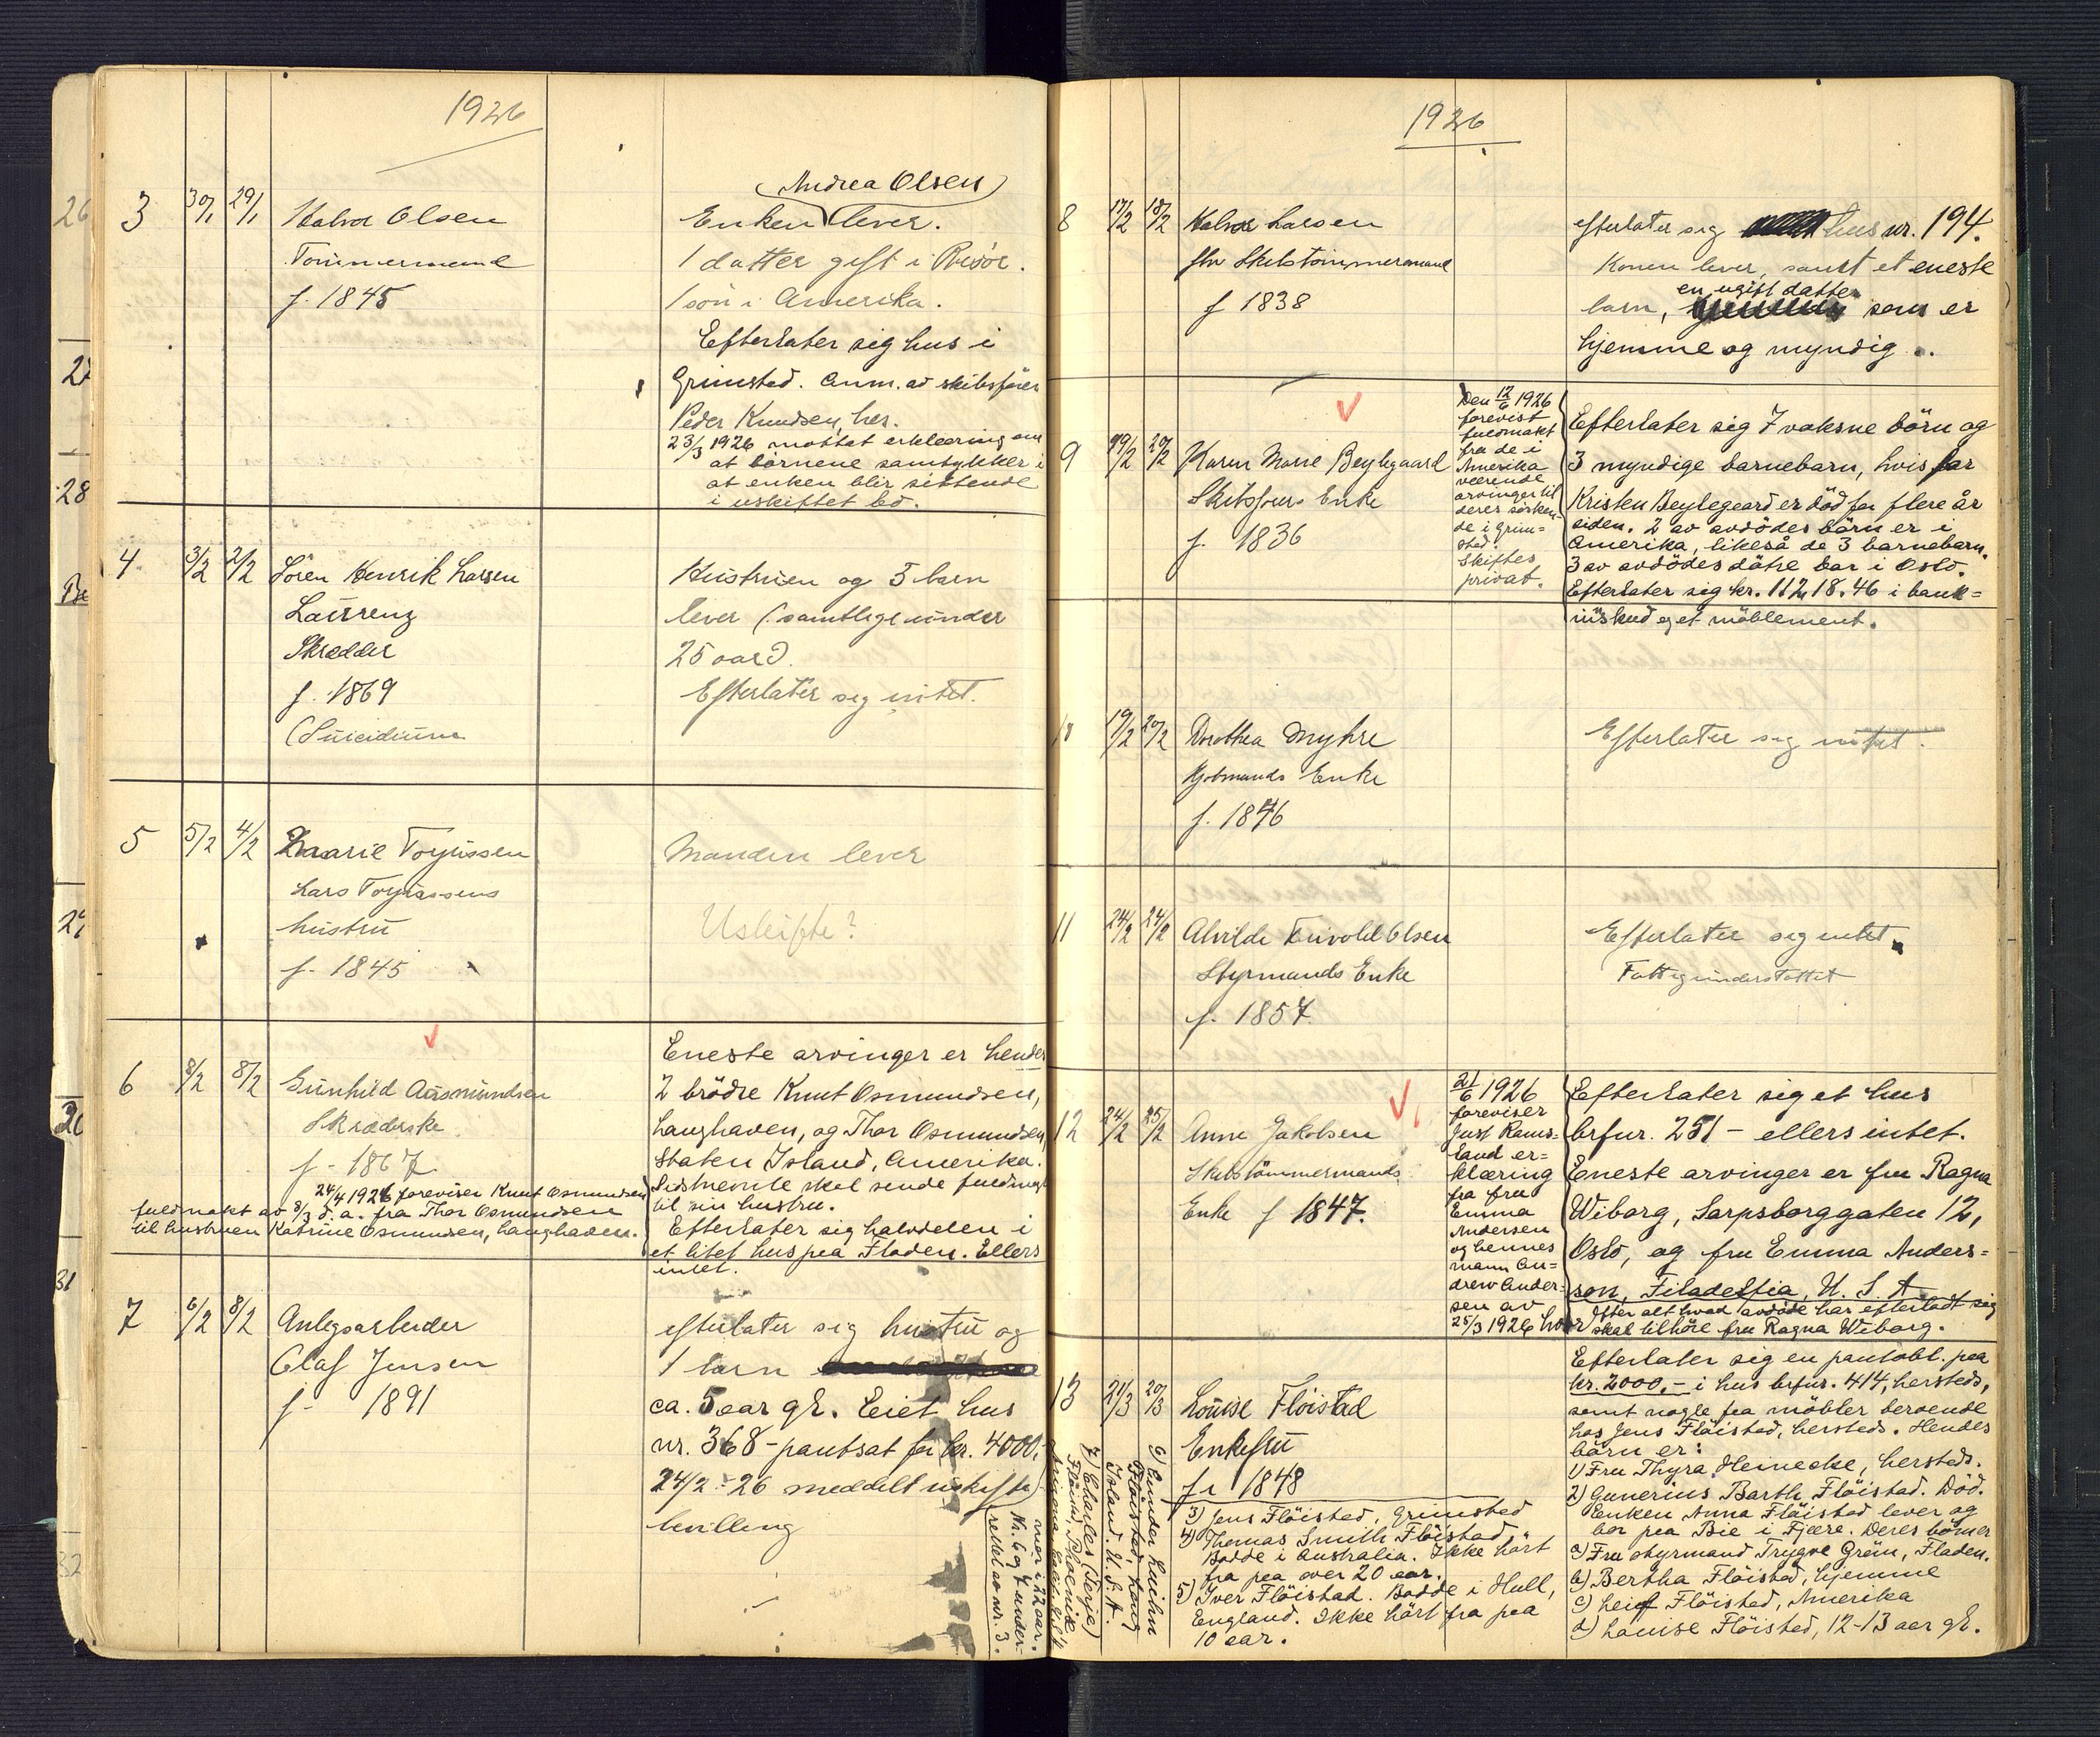 1926
3
30/1
29/1
Halvor Olsen
Tømmermand
f. 1845
(Andrea Olsen)
Enken lever.
1 datter gift i Risör.
1 sön i Amerika.
Efterlater sig hus i
Grimstad. Anm. av skibsförer
Peder Knudsen, her.
23/3 1926 mottat erklæring om
at börnene samtykker i
at enken blir sittende
i uskiftet bo.
4.
3/2
2/2
Sören Henrik Larsen
Laurenz
Skrædder
f. 1869
(Suicidium
Hustruen og 5 barn
lever (samtlige under
25 aar).
Efterlater sig intet.
5
5/2
4/2
Maarie Torjussen
Lars Torjussens
hustru
f. 1845
Manden lever
Uskifte?
6
8/2
8/2
Gunhild Aasmundsen
Skrædderske
f. 1867
24/4 1926 foreviser Knut Osmundsen
fuldmakt av 8/3 d. a. fra Thor Osmundsen
til hustruen Katrine Osmundsen, Langhaven.
Eneste arvinger er hendes
2 brödre Knut Osmundsen,
Langhaven, og Thor Osmundsen,
Staten Island, Amerika.
Sidstnevnte skal sende fuldmagt
til sin hustru.
Efterlater sig halvdelen i
et litet hus paa Fladen. Ellers
intet.
7
6/2
8/2
Anlegsarbeider
Olaf Jensen
f. 1891
efterlater sig hustru og
1 barn
ca. 5 aar gl. Eiet hus
nr. 368 - pantsat for kr. 4000.-
24/2 - 26 meddelt uskifte
bevilling
1926
8
17/2
18/2
Halvor Larsen
fhv Skibstömmermand
f 1838
efterlater sig hus nr. 194.
Konen lever, samt et eneste
en ugift datter
barn, som er
hjemme og myndig.
9
19/2
20/2
Karen Marie Beylegaard
Skibsförers Enke
f. 1836
Den 12/6 1926
forevist
fuldmakt
fra de i
Amerika
værende
arvinger til
deres sösken-
de i Grim-
stad.
Skiftes
privat.
Efterlater sig 7 voksne börn og
3 myndige barnebarn, hvis far
Kristen Beylegaard er död for flere år
siden. 2 av avdödes börn er i
Amerika, likeså de 3 barnebarn.
3 av avdödes dötre bor i Oslo.
Efterlater sig kr. 11218.46 i bank=
inskud og et möblement.
10
19/2
20/2
Dorothea Myhre
Kjöbmands Enke
f. 1846
Efterlater sig intet.
11
24/2
24/2
Alvilde Olsen
Styrmands Enke
f. 1857
Efterlater sig intet
Fattigunderstöttet
12
24/2
25/2
Anne Jakobsen
Skibstömmermands
Enke f 1847.
21/6 1926
foreviser
Just Rams-
land er=
klæring
fra fru
Emma
Andersen
og hennes
mann An=
drew Ander-
sen av
25/3 1926 hvor
Efterlater sig et hus
brfnr. 251 - ellers intet.
Eneste arvinger er fru Ragna
Wiborg, Sarpsborggaten 12,
Oslo, og fru Emma Anders=
son, Filadelfia, U. S. A.
efter alt hvad avdöde har efterladt sig
skal tilhöre fru Ragna Wiborg.
13
21/3
20/3
Louise Flöistad
Enkefru
f. 1848
Efterlater sig en pantobl. paa
kr. 2000,- i hus brfnr. 414, hersteds,
samt nogle faa möbler beroende
hos Jens Flöistad, hersteds. Hendes
börn er:
1) Fru Thyra Heinecke, hersteds.
2) Gunerius Barth Flöistad. Död.
Enken Anna Flöistad lever og
bor paa Bie i Fjære. Deres börn er
a) Fru styrmand Trygve Gröm, Fladen.
b) Bertha Flöistad, hjemme
c) Leif Flöistad, Amerika
d) Louise Flöistad, 12-13 aar gl.
3) Jens Flöistad, Grimstad
4) Thomas Smith Flöistad,
Bodde i Australia. Ikke hört
fra paa over 20 aar.
5) Iver Flöistad. Bodde i Hull,
England. Ikke hört fra paa
10 aar.
6) Einder
Flöistad, Long
Island. U. S. A.
7) Charles (Terje)
Flöistad, Phoenix
Arizona
mer i 22 aar.
Nr. 6 og 7 under-
rettet av nr. 3.
26
28
31
32